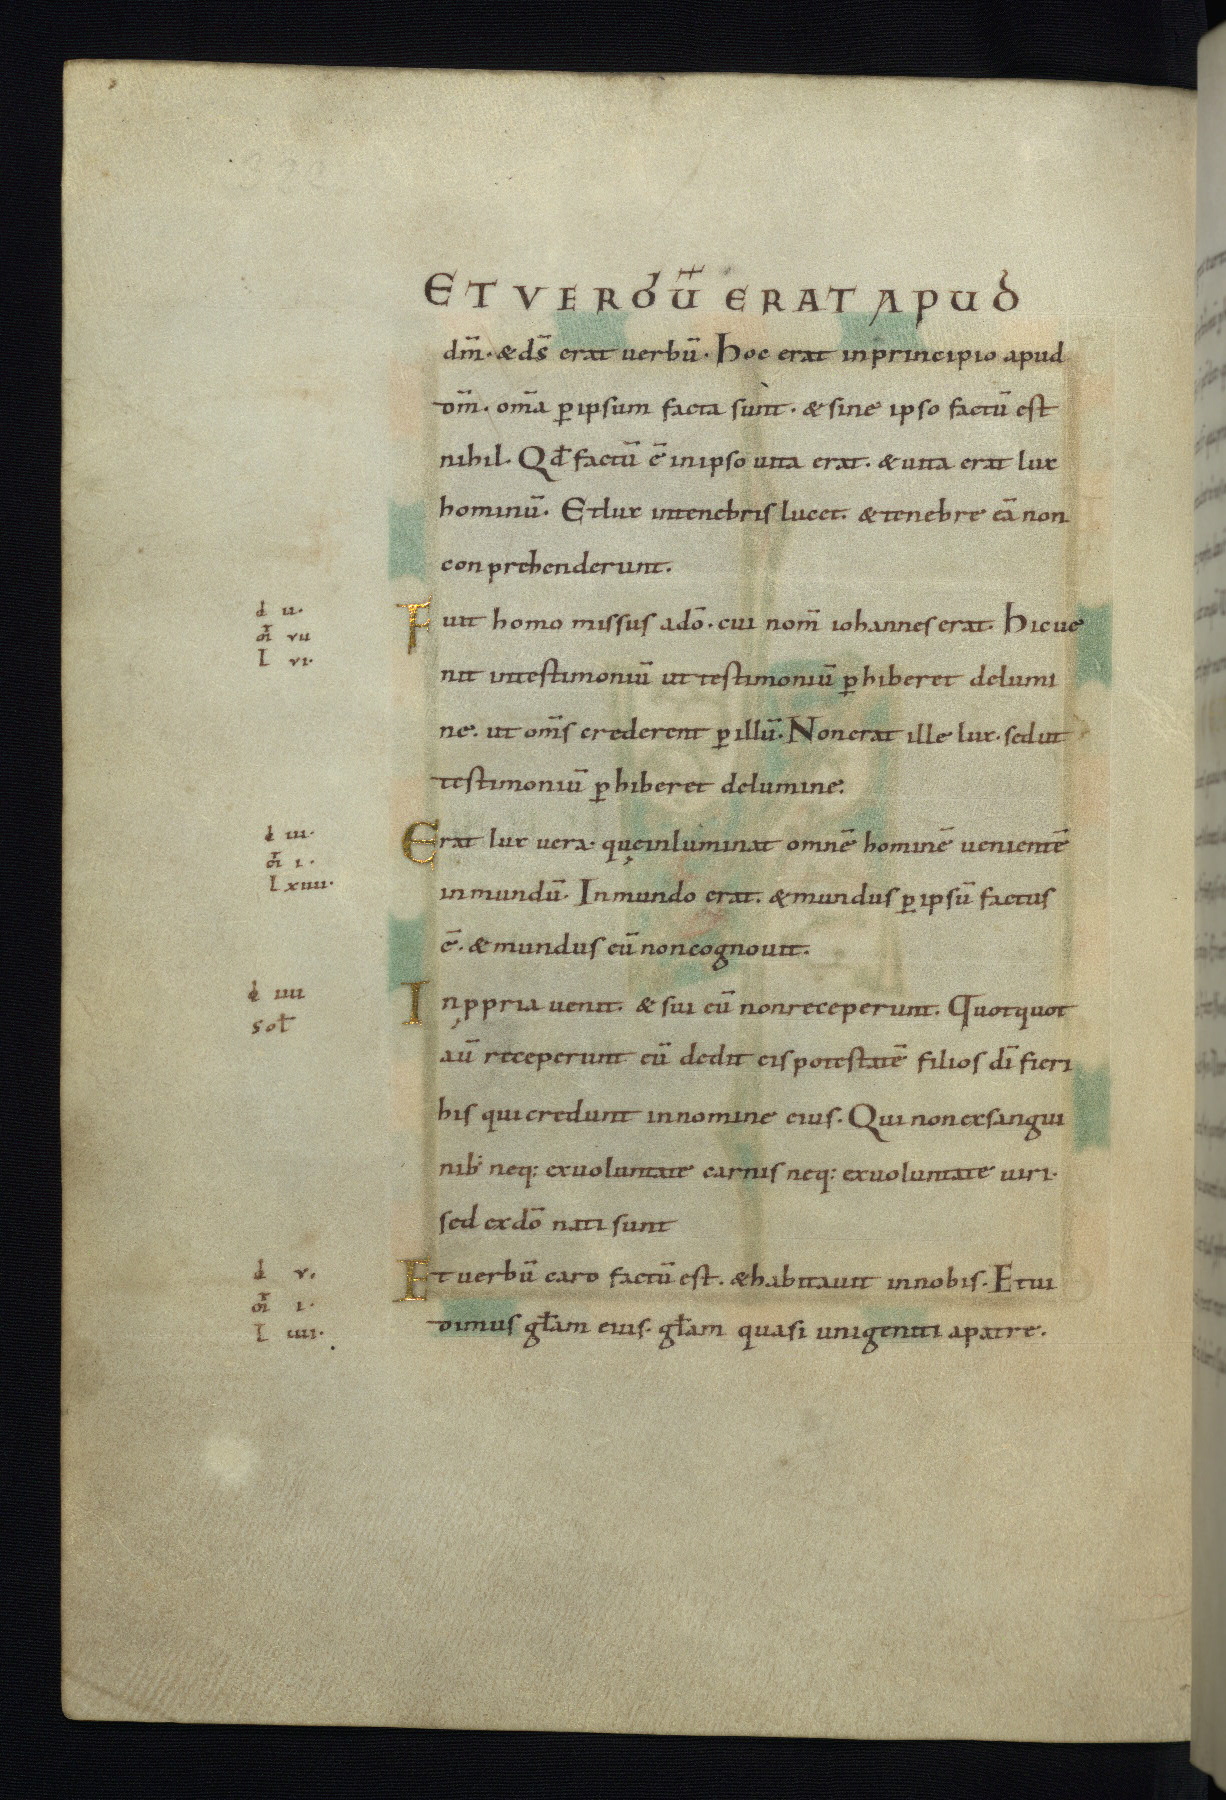 ET VERBŪ ERAT APUD
dm̄. & ds̄ erat uerbū. Hoc erat inprincipio apud
dm̄. om̄a ꝑipsum facta sunt. & sine ipso factū est
nihil. Qd̄ factū ē inipso uita erat. & uita erat lux
hominū. Etlux intenebris lucet. & tenebre eā non
conprehenderunt.
đ ii.
Fuit homo missus adō. cui nom̄ iohannes erat. Hic ue
m̄ vii
l vi.
nit intestimoniū ut testimoniū ꝑhiberet delumi
ne. ut om̄s crederent ꝑillū. Non erat ille lux. sed ut
testimoniū ꝑhiberet delumine.
đ iii.
Erat lux uera. quęinluminat omnē hominē uenientē
m̄ i.
l xiiii.
inmundū. Inmundo erat. & mundus ꝑipsū factus
ē. & mundus eū noncognouit.
đ iiii
Inꝓpria uenit. & sui eū nonreceperunt. Quotquot
sol̄
aū receperunt eū dedit eis potestatē filios dī fieri
his quicredunt innomine eius. Qui nonexsangui
nib; neq: exuoluntate carnis neq: exuoluntate uiri.
sed exdō nati sunt
đ v.
Et uerbū caro factū est. & habitauit innobis. Et ui
m̄ i.
l iiii.
dimus głam eius. głam quasi unigeniti apatre.